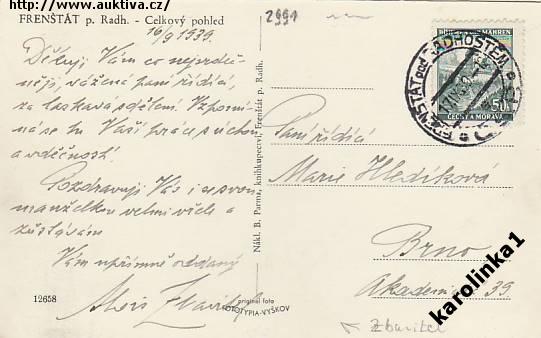 http://www.auktiva.cz/
FRENŠTÁT p. Radh. - Celkový pohled
16/9 1939.
Děkuji Vám co nejsrdeč-
něji, vážená paní řídící,
za laskavá sdělení. Vzpomí-
ná se tu Vaší práce s úctou
a vděčností.
Pozdravuji Vás i se svou
manželkou velmi vřele a
zůstávám
Vám upřímně oddaný
Alois
12658
original foto
FOTOTYPIA-VYŠKOV
Nákl. B. Parma, knihkupectví, Frenštát p. Radh.
2991
BÖHMEN UND MÄHREN
50
ČECHY A MORAVA
FRENŠTÁT pod RADHOŠTĚM
Paní řídící
Marie Hledíková
Brno
Akademická 39
karolinka1